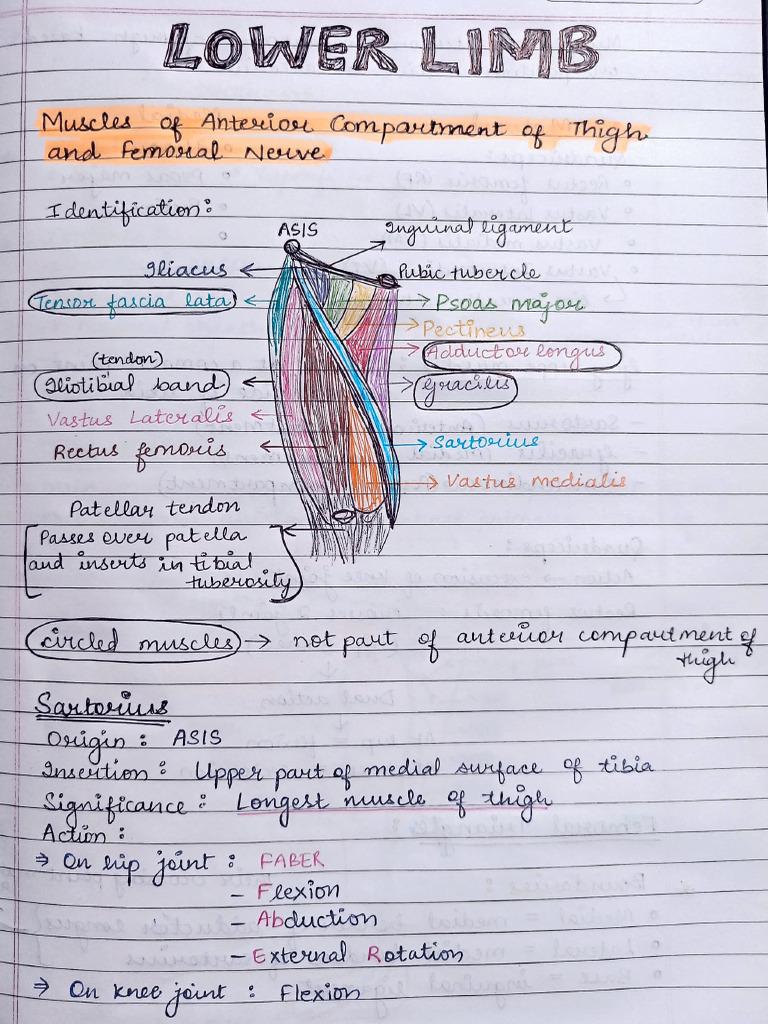 LOWER LIMB
Muscles of Anterior Compartment of Thigh
and Femoral Nerve
Identification:
ASIS
Inguinal ligament
Iliacus
Pubic tubercle
Tensor fascia lata
Psoas major
Pectineus
(tendon)
Adductor longus
Iliotibial band
Gracilis
Vastus Lateralis
Rectus femoris
Sartorius
Vastus medialis
Patellar tendon
[Passes over patella
and inserts in tibial
tuberosity]
circled muscles → not part of anterior compartment of
thigh
Sartorius
Origin : ASIS
Insertion : Upper part of medial surface of tibia
Significance : Longest muscle of thigh
Action :
⇒ On hip joint : FABER
– Flexion
– Abduction
– External Rotation
⇒ On knee joint : Flexion